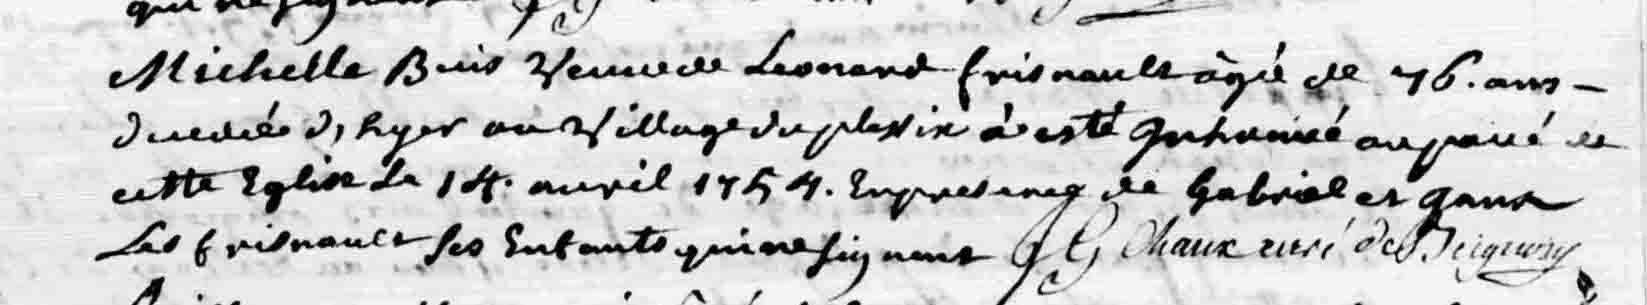 qui ne signent
Michelle Buis Veuve de Leonard frisnault âgé de 76. ans -
d'hyer au Village du plessix à esté Inhumé au pavé de
cette Eglise Le 14. avril 1754. En presence de Gabriel et
Les frisnault ses Enfants qui ne signent Chaux curé de